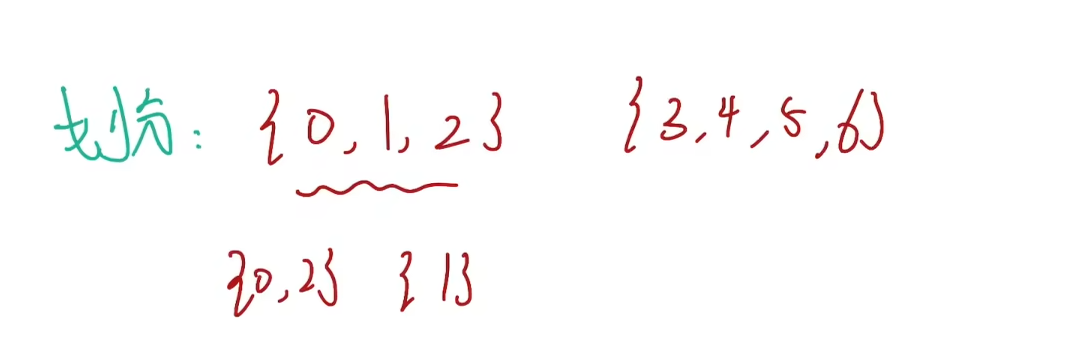 划分: {0,1,2} {3,4,5,6}
{0,2} {1}